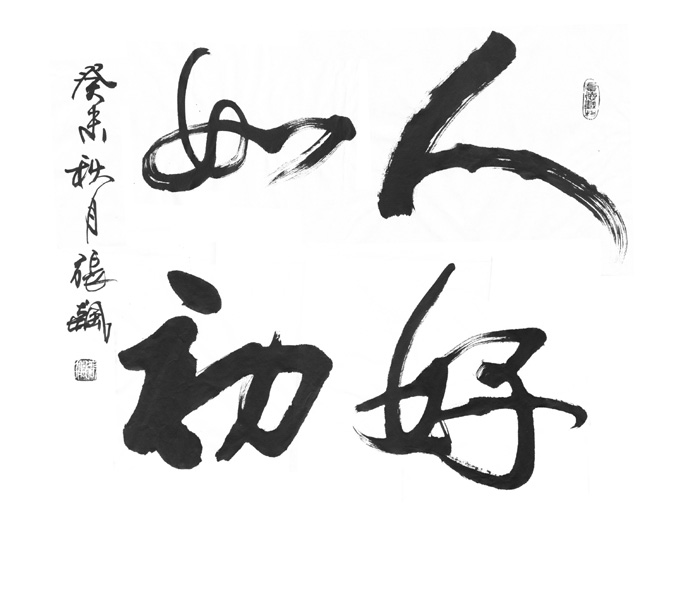 人好
如初
癸未秋月張飆